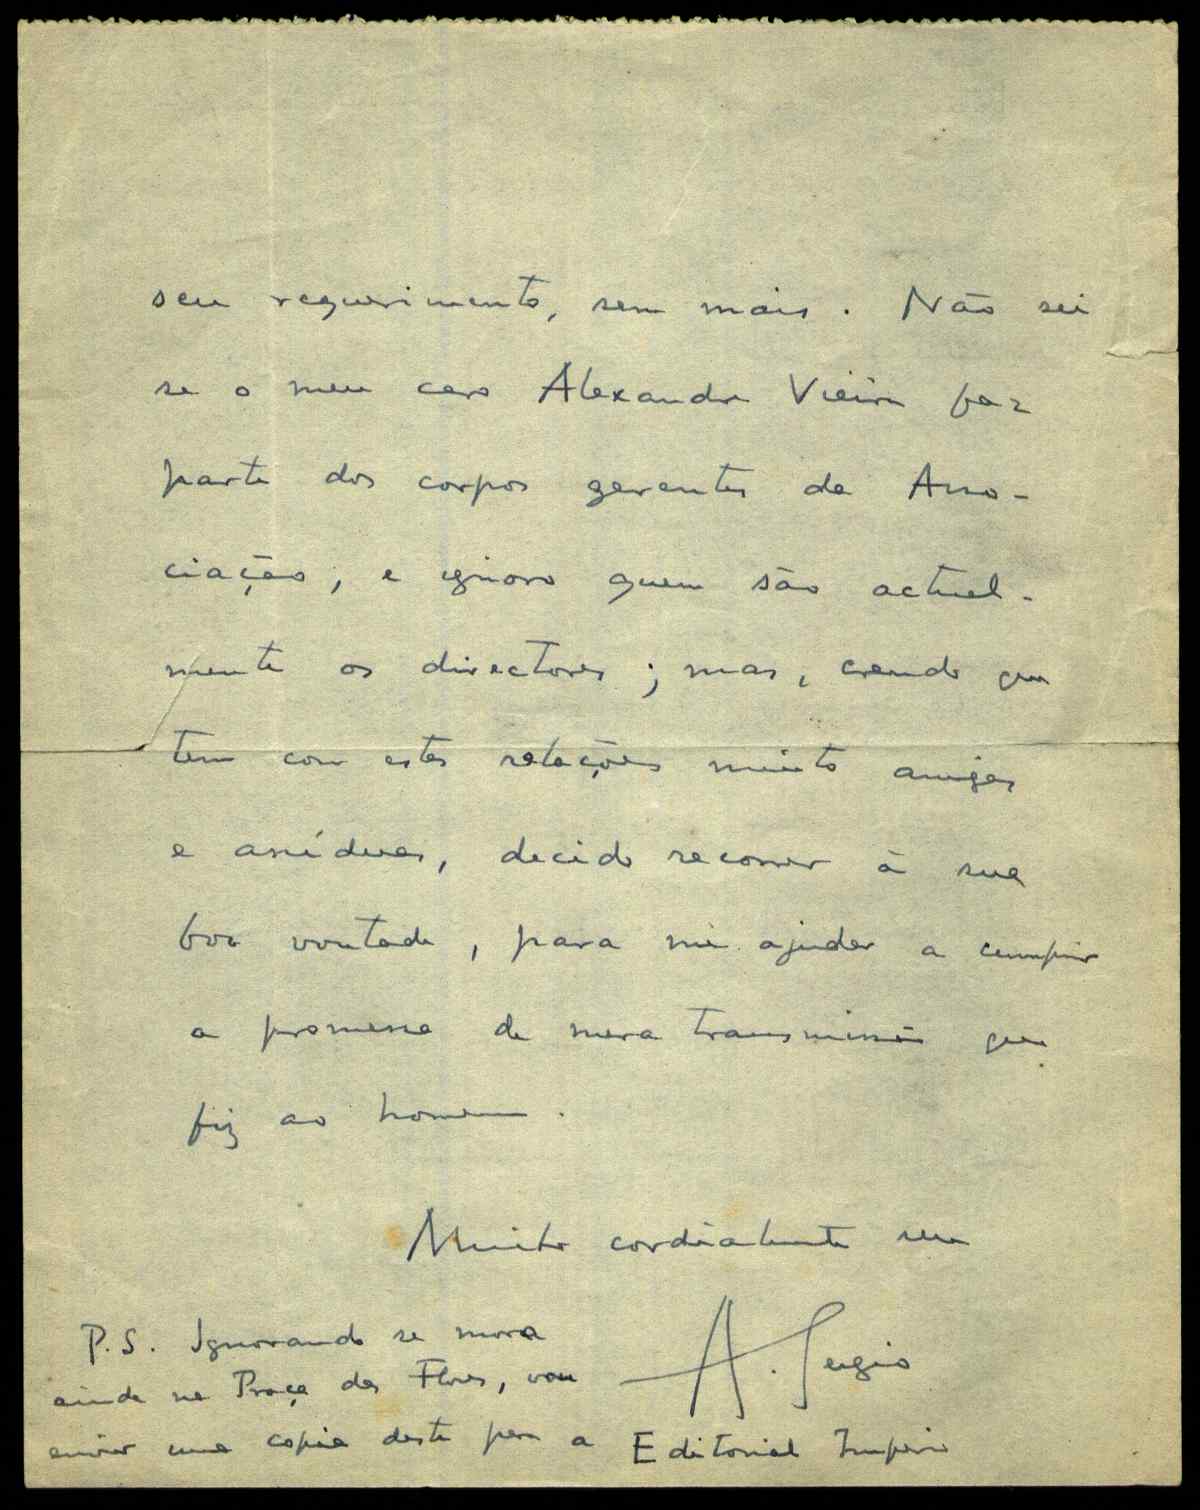 seu requerimento, sem mais. Não sei
se o meu caro Alexandre Vieira faz
parte dos corpos gerentes da Asso-
ciação, e ignoro quem são actual-
mente os directores; mas, crendo que
tem com estes relações muito amigas
e assíduas, decido recorrer à sua
boa vontade, para me ajudar a cumprir
a promessa de mera transmissão que
fiz ao homem.
Muito cordialmente seu
A. Sergio
P.S. Ignorando se mora
ainda na Praça das Flores, vou
enviar uma copia desta para a Editorial Imperio